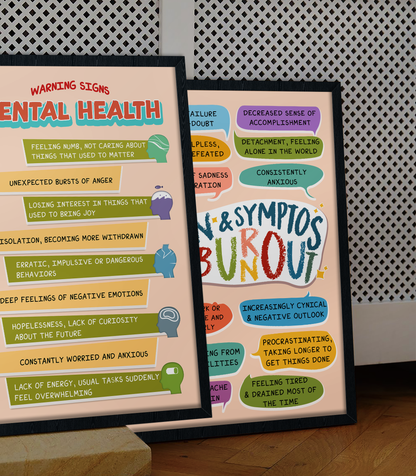 WARNING SIGNS
ENTAL HEALTH
FEELING NUMB, NOT CARING ABOUT
THINGS THAT USED TO MATTER
UNEXPECTED BURSTS OF ANGER
LOSING INTEREST IN THINGS THAT
USED TO BRING JOY
ISOLATION, BECOMING MORE WITHDRAWN
ERRATIC, IMPULSIVE OR DANGEROUS
BEHAVIORS
DEEP FEELINGS OF NEGATIVE EMOTIONS
HOPELESSNESS, LACK OF CURIOSITY
ABOUT THE FUTURE
CONSTANTLY WORRIED AND ANXIOUS
LACK OF ENERGY, USUAL TASKS SUDDENLY
FEEL OVERWHELMING
AILURE
DOUBT
DECREASED SENSE OF
ACCOMPLISHMENT
LPLESS,
EFEATED
DETACHMENT, FEELING
ALONE IN THE WORLD
F SADNESS
RATION
CONSISTENTLY
ANXIOUS
N & SYMPTOS
BURNOUT
RN
K OR
E AND
RLY
INCREASINGLY CYNICAL
& NEGATIVE OUTLOOK
NG FROM
ILITIES
PROCRASTINATING,
TAKING LONGER TO
GET THINGS DONE
ACHE
IN
FEELING TIRED
& DRAINED MOST OF
THE TIME